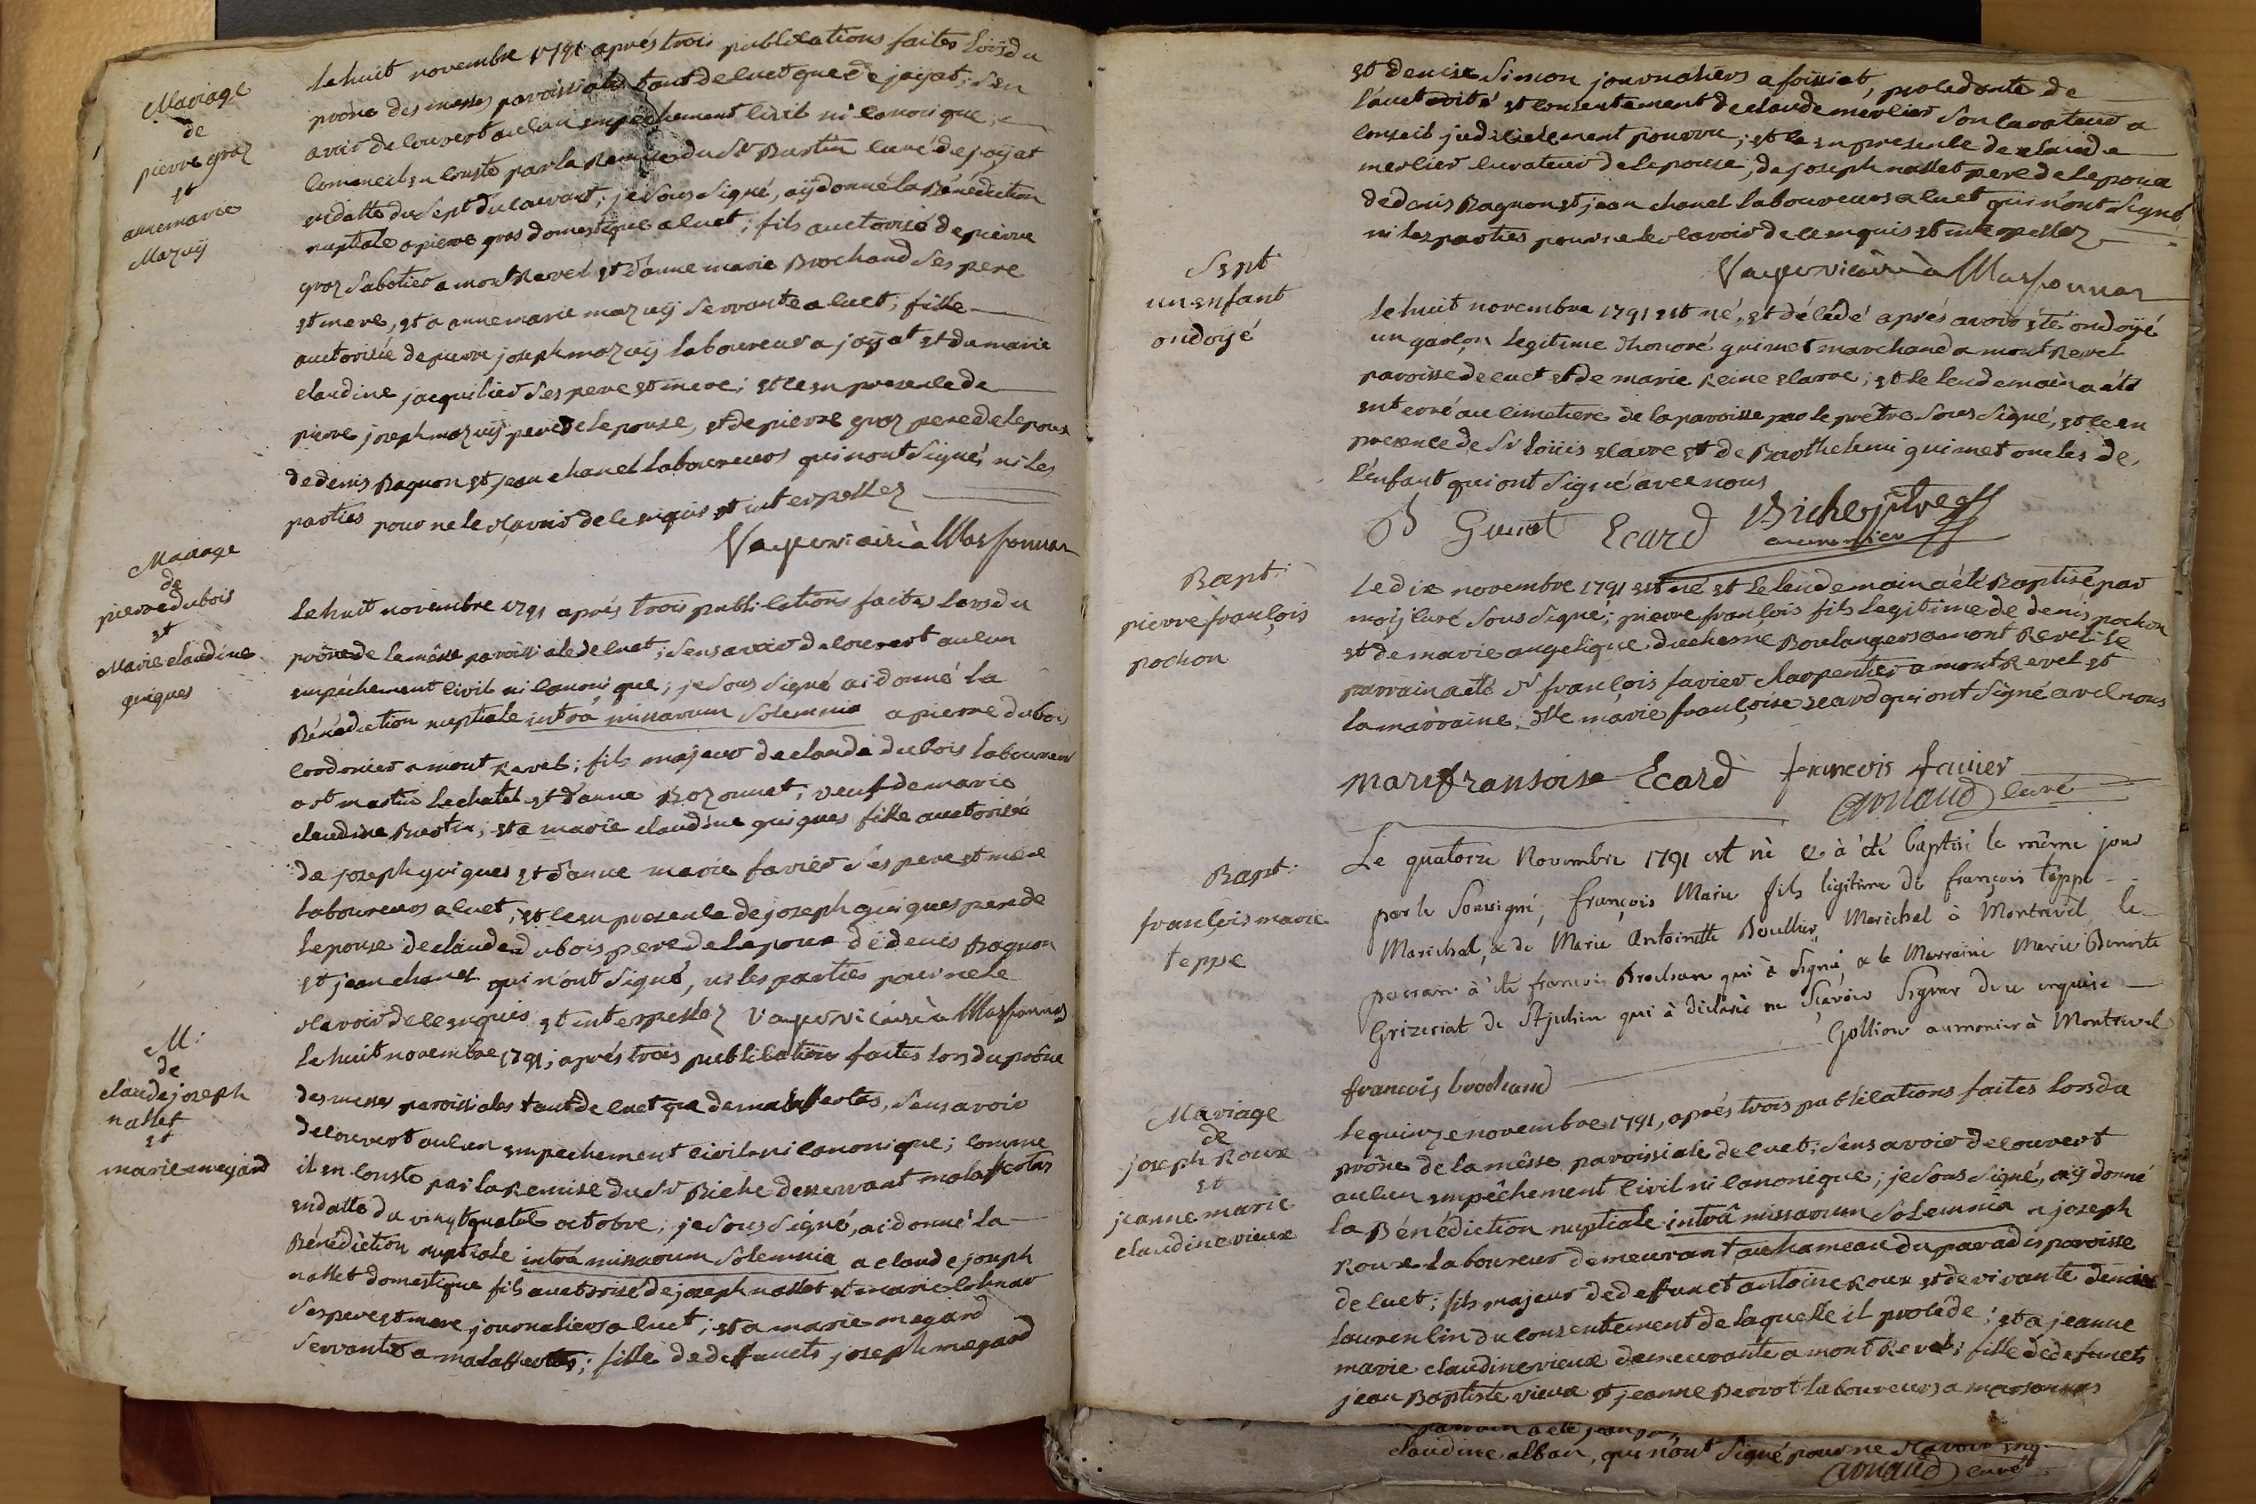 Mariage
de
pierre groz
et
annemarie
Mazuij
le huit novembre 1791 aprés trois publications faites lorsdu
prône des messes paroissiales tant de cuet que de jaÿat, sen
avoir decouvert aucun empechement civil ni canonique,
comme il en conste par la Remise du Sr Burtin curé de jaÿat
en datte du sept du courant; je sous signé, aÿ donné la Bénédiction
nuptiale a pierre gros domestique a cuet; fils auctorisé de pierre
groz Sabotier a montRevel et d'anne marie Brochand ses pere
et mere, et a anne marie mazuij servante a cuet; fille
auctorisée de pierre joseph mazuij laboureur a jaÿat et du marie
claudine jacquilier ses pere et mere; et ce en presence de
pierre joseph mazuij pere de lepouse, et de pierre groz pere de lepoux
de denis Bagnon et jean chanel laboureurs qui n'ont Signé, ni les
parties pour ne le scavoir de ce enquis et interpellez
Vayer vicaire à Marsonnas
Mariage
de
pierre dubois
et
Marie claudine
guigues
le huit novembre 1791 aprés trois publications faites lors du
prône de la même paroissiale de cuet; sens avoir decouvert aucun
empéchement civil ni canonique; je sous signé ai donné la
Bénédiction nuptiale intrà missarum solemnia a pierre dubois
cordonier a mont Revel; fils majeur de claude dubois laboureur
a st martin lechatel et d'anne Bozonnet; veuf de marie
claudine Burtin; et a marie claudine guigues fille auctorisée
de joseph guigues et d'anne marie favier ses pere et mere
laboureurs a cuet; et ce en presence de joseph guigues pere de
lepouse de claude dubois pere de lepoux de denis Bagnon
et jean chanel qui n'ont signé, ni les parties pour ne le
scavoir de ce enquis et interpellez Vayer vicaire à Marsonnas
M:
de
claude joseph
nallet
et
marie megard
le huit novembre 1791; aprés trois publications faites lors du prône
des messes paroissiales tant de cuet que de malaffertas, sens avoir
decouvert aucun empechement civil ni canonique; comme
il en conste par la Remise du Sr Biche desservant malaffertas
en datte du vingt quatre octobre; je sous signé, ai donné la
Bénédiction nuptiale intrà missarum solemnia a claude joseph
nallet domestique fils auctorisé de joseph nallet et marie
ses pere et mere journaliers a cuet; et a marie megard
servante a malaffertas; fille de deffuncts joseph megard
et denise Simon journaliers a foissiat, procedante de
l'auctorité et consentement de claude merlier son curateur a
conseil judiciairement pourvu; et ce en presence de claude
merlier curateur de lepouse, de joseph nallet pere de lepoux
de denis Bagnon et jean chanel laboureurs a cuet qui n'ont signé
ni les parties pour ne le scavoir de ce enquis et interpellez
Vayer vicaire à Marsonnas
Sept
un enfant
ondoÿé
le huit novembre 1791 est né, et décédé aprés avoir été ondoÿé
un garçon legitime d'honoré guimet marchand a montRevel
paroisse de cuet et de marie Reine ecarre; et le lendemain a été
enterré au cimetiere de la paroisse par le prêtre sous signé, et ce en
presence de Sr loüis ecarre et de Barthelemi guimet oncles de
l'enfant qui ont signé avec nous
B Guimet Ecard Biche ptre
aumonier
Bapt:
pierre françois
pochon
le dix novembre 1791 est né et le lendemain a été Baptisé par
moy curé sous signé; pierre françois fils legitime de denis pochon
et de marie angelique duchesne Boulangers a mont Revel: le
parrain a été Sr françois favier charpentier a montRevel et
la marraine dlle marie françoise ecard qui ont signé avec nous
marifransoise Ecard françois favier
Arnaud curé
Bapt:
françois marie
teppe
Le quatorze Novembre 1791 est né & à été baptisé le même jour
par le Soussigné, François Marie fils légitime de françois teppe
Maréchal, & de Marie Antoinette Boullier Maréchal à Montrevel, le
parrain à été françois Brochan qui à signé, & la Marraine Marie Benoite
Grizeriat de St julien qui à déclaré ne Sçavoir Signer de ce enquise
Gollion aumonier à Montrevel
françois brochand
Mariage
de
joseph Roux
et
jeanne marie
claudine vieux
le quinze novembre 1791, aprés trois publications faites lors du
prône de la mêsse paroissiale de cuet; sens avoir decouvert
aucun empêchement civil ni canonique; je sous signé, aÿ donné
la Bénédiction nuptiale intrà missarum solemnia a joseph
Roux laboureur demeurant au hameau du paradis paroisse
de cuet; fils majeur de deffunct antoine Roux et de vivante denise
laurencin du consentement de laquelle il procéde; et a jeanne
marie claudine vieux demeurante a mont Revel; fille de defuncts
jean Baptiste vieux et jeanne perrot laboureurs a marsonnas
parrain a été jean
claudine alban, qui n'ont signé pour ne scavoir enq
Arnaud curé